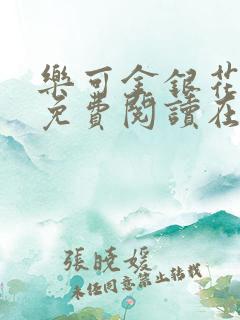 樂可金銀花
免費閱讀在
張曉媛
未经同意禁止转载